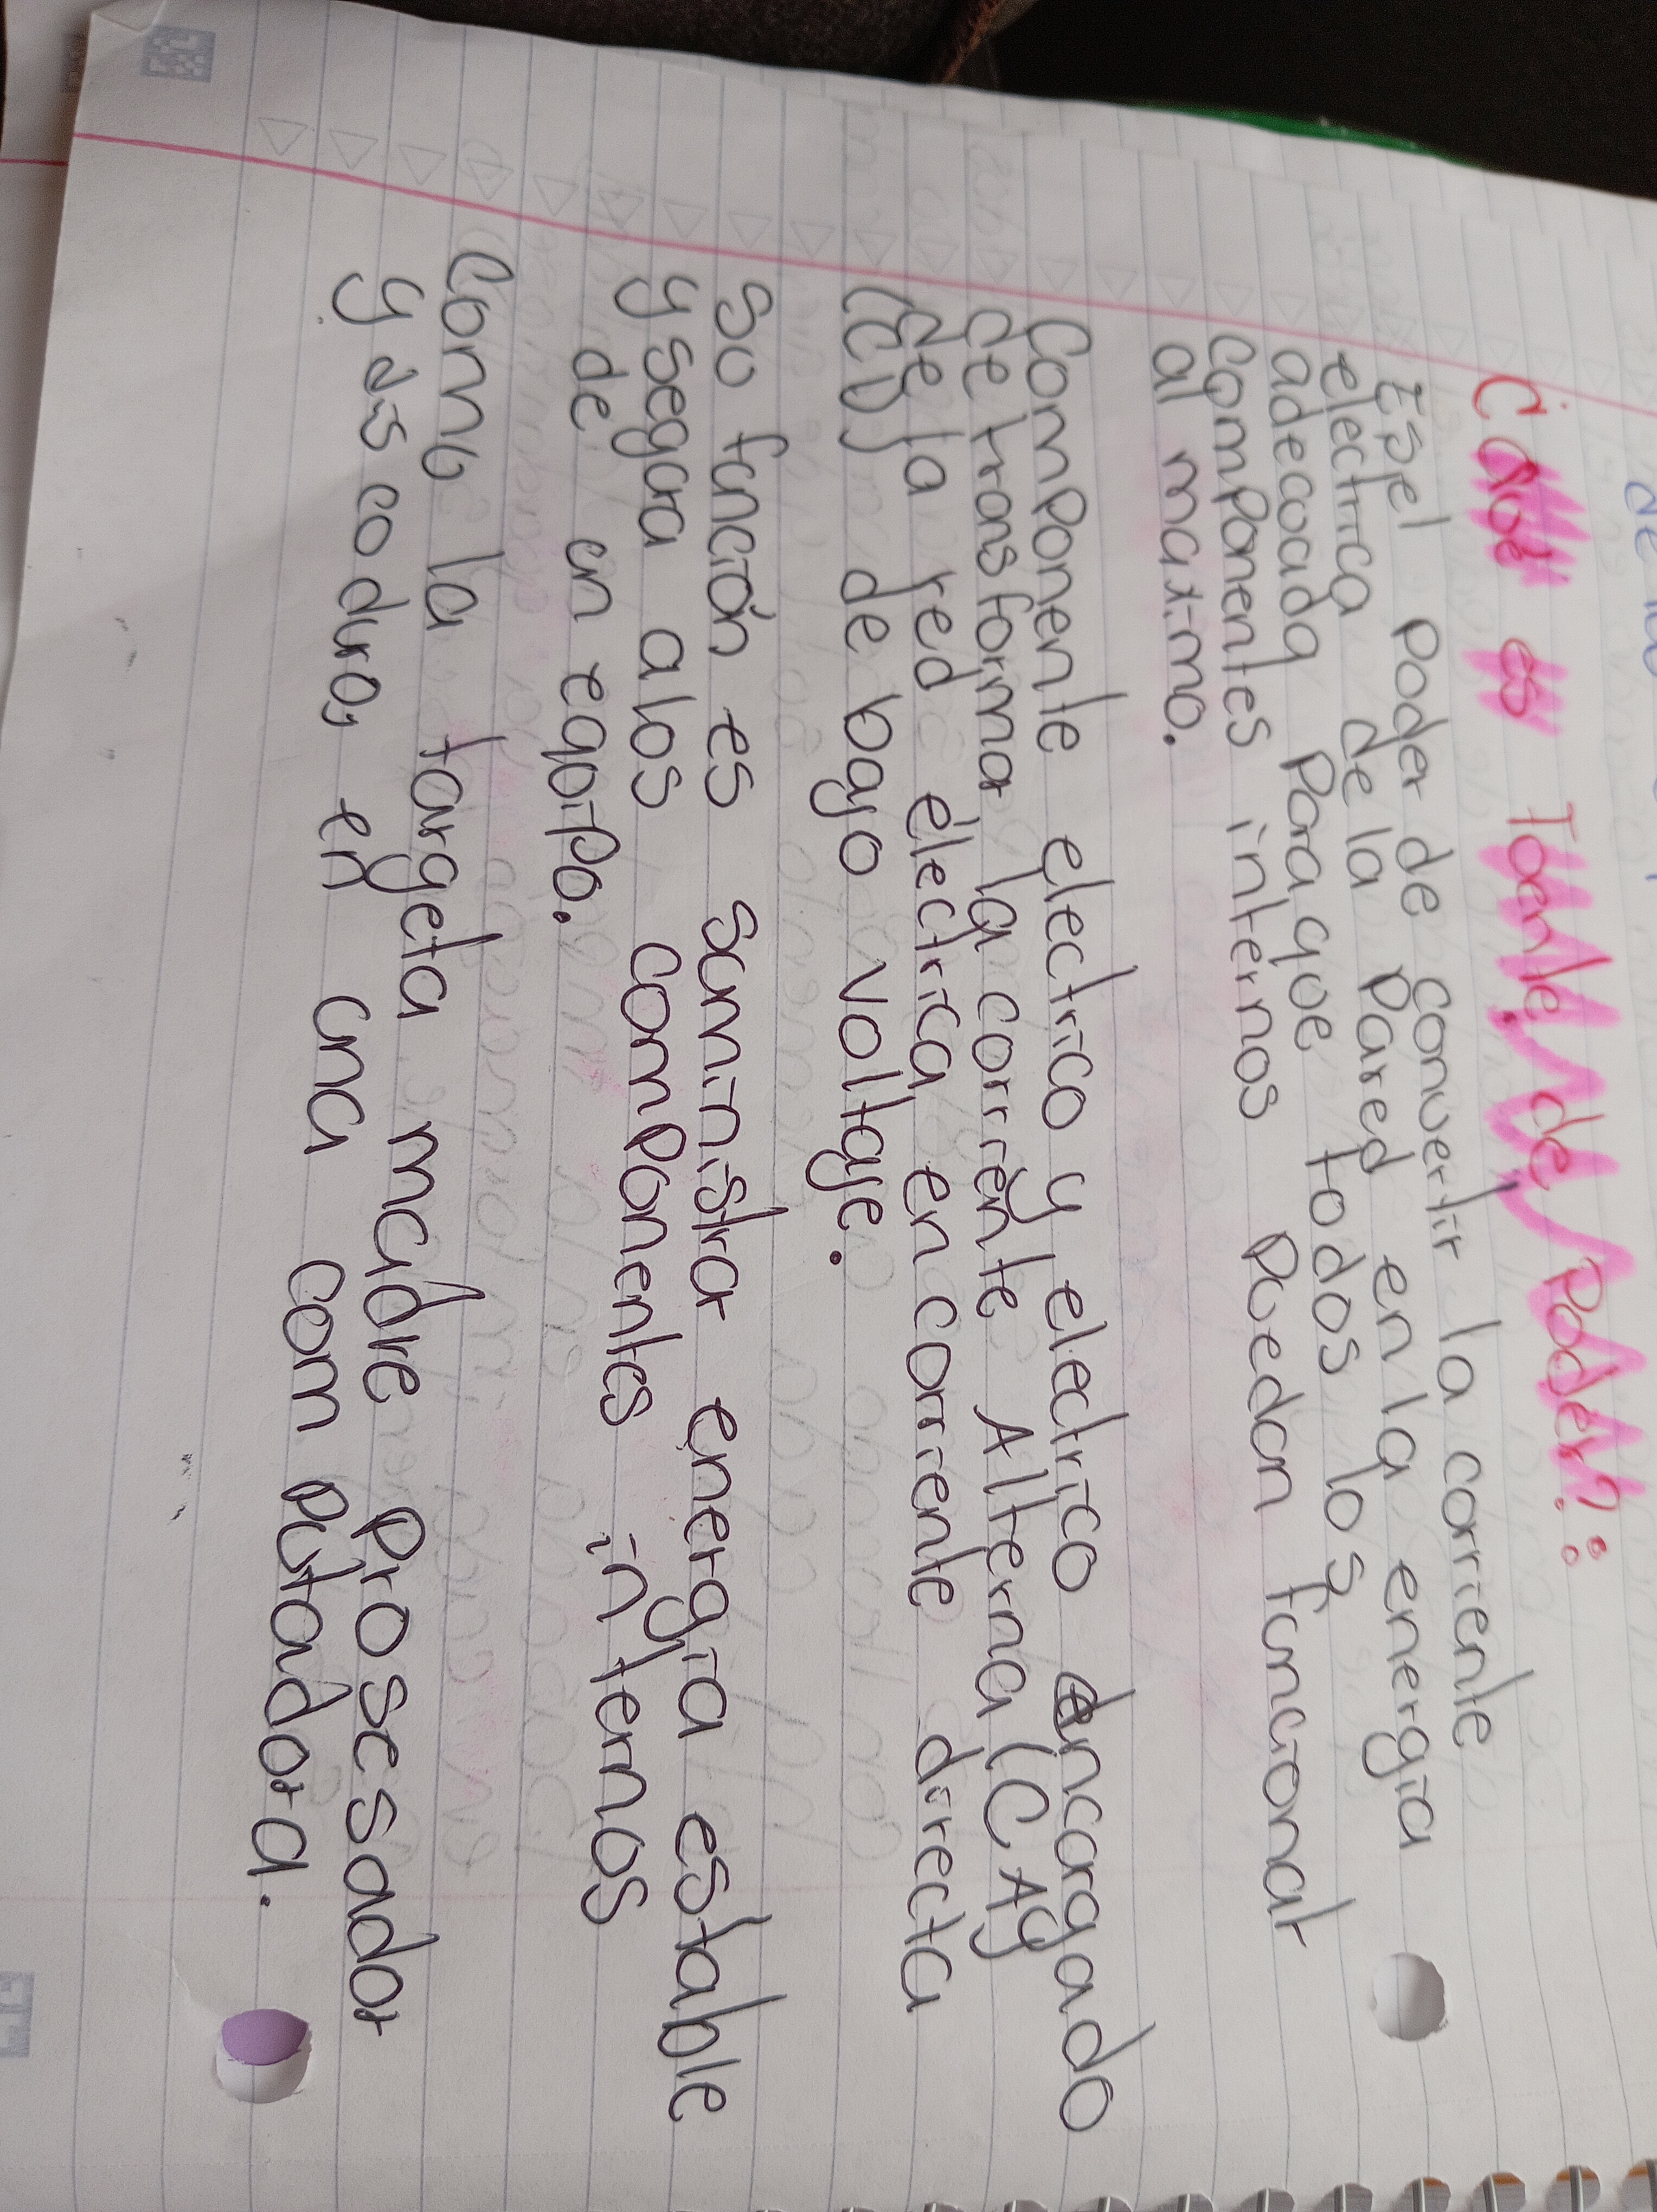 Cual es Fuente, de Poder?:
Es el Poder de convertir la corriente
electrica de la Pared en la energia
adecuada Para que todos los
componentes internos Puedan funcionar
al maximo.
Componente electrico y electrico encargado
de transformar la corriente Alterna (CA)
de la red électrica en corriente directa
(CD) de bajo voltaje.
Su función es suministrar energia estable
y segura a los componentes internos
de un equipo.
Como la targeta madre Prosesador
y disco duro, en una comPutadora.